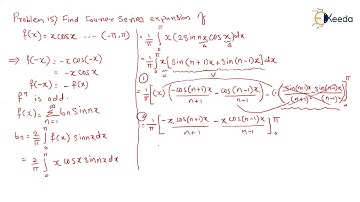 Problem 15) Find Fourier Series expansion of
f(x) = x cosx .... (-π,π)
⇒ f(-x) = -x cos(-x)
= -x cosx
f(-x) = - f(x)
fⁿ is odd.
f(x) = ∑ bn sin nx
n=1
bn = 2/π ∫₀^π f(x) sin nx dx
= 2/π ∫₀^π x cosx sin nx dx
= 1/π ∫₀^π x (2 sin nx cos x) dx
a b
= 1/π ∫₀^π x [sin(n+1)x + sin(n-1)x] dx
u v
①
= 1/π [(x) (-cos(n+1)x/n+1 - cos(n-1)x/n-1) - (1)(-sin(n+1)x/(n+1)² - sin(n-1)x/(n-1)²)]₀^π
= 1/π [-x cos(n+1)x/n+1 - x cos(n-1)x/n-1]₀^π
Ekeeda